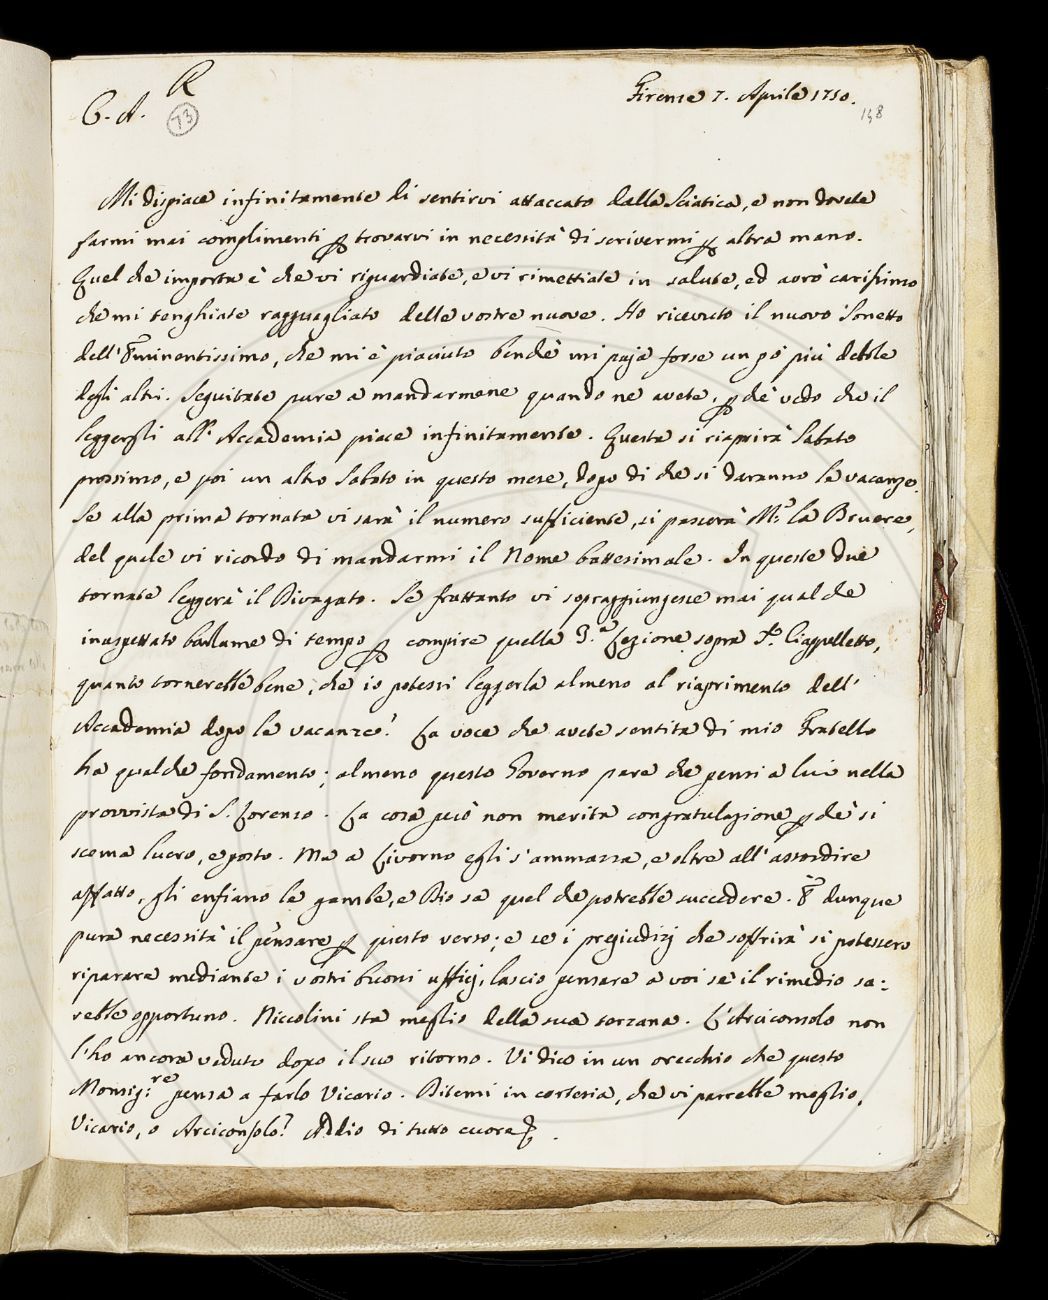 R
C. A.
73
Firenze 7. Aprile 1750.
148
Mi dispiace infinitamente di sentirvi attaccato dalla Sciatica, e non dovete
farmi mai complimenti p trovarvi in necessità di scrivermi p altra mano.
Quel che importa è che vi riguardiate, e vi rimettiate in salute, ed avrò carissimo
che mi tenghiate ragguagliato delle vostre nuove. Ho ricevuto il nuovo Sonetto
dell'Eminentissimo, che mi è piaciuto benchè mi paja forse un pò più debole
degli altri. Seguitate pure a mandarmene quando ne avete, p chè vedo che il
leggergli all'Accademia piace infinitamente. Questa si riaprirà Sabato
prossimo, e poi un altro Sabato in questo mese, dopo di che si daranno le vacanze.
Se alla prima tornata vi sarà il numero sufficiente, si passerà Mr. la Bruere,
del quale vi ricordo di mandarmi il Nome battesimale. In queste due
tornate leggerà il Divagato. Se frattanto vi sopraggiungesse mai qualche
inaspettato barlume di tempo p compire quella 3.a Lezione sopra Sr. Ciappelletto,
quanto tornerebbe bene, che io potessi leggerla almeno al riaprimento dell'
Accademia dopo le vacanze! La voce che avete sentita di mio Fratello
ha qualche fondamento; almeno questo Governo pare che pensi a lui nella
provvista di S. Lorenzo. La cosa però non merita congratulazione p chè si
scema lucro, e posto. Ma a Livorno egli s'ammazza, e oltre all'assordire
affatto, gli enfiano le gambe, e Dio sa quel che potrebbe succedere. E dunque
pura necessità il pensare p questo verso; e se i pregiudizj che soffrirà si potessero
riparare mediante i vostri buoni uffizj, lascio pensare a voi se il rimedio sa:
rebbe opportuno. Niccolini sta meglio della sua terzana. L'Arciconsolo non
l'ho ancora veduto dopo il suo ritorno. Vi dico in un orecchio che questo
Monsig.re pensa a farlo Vicario. Ditemi in cortesia, che vi parrebbe meglio,
Vicario, o Arciconsolo? Addio di tutto cuore